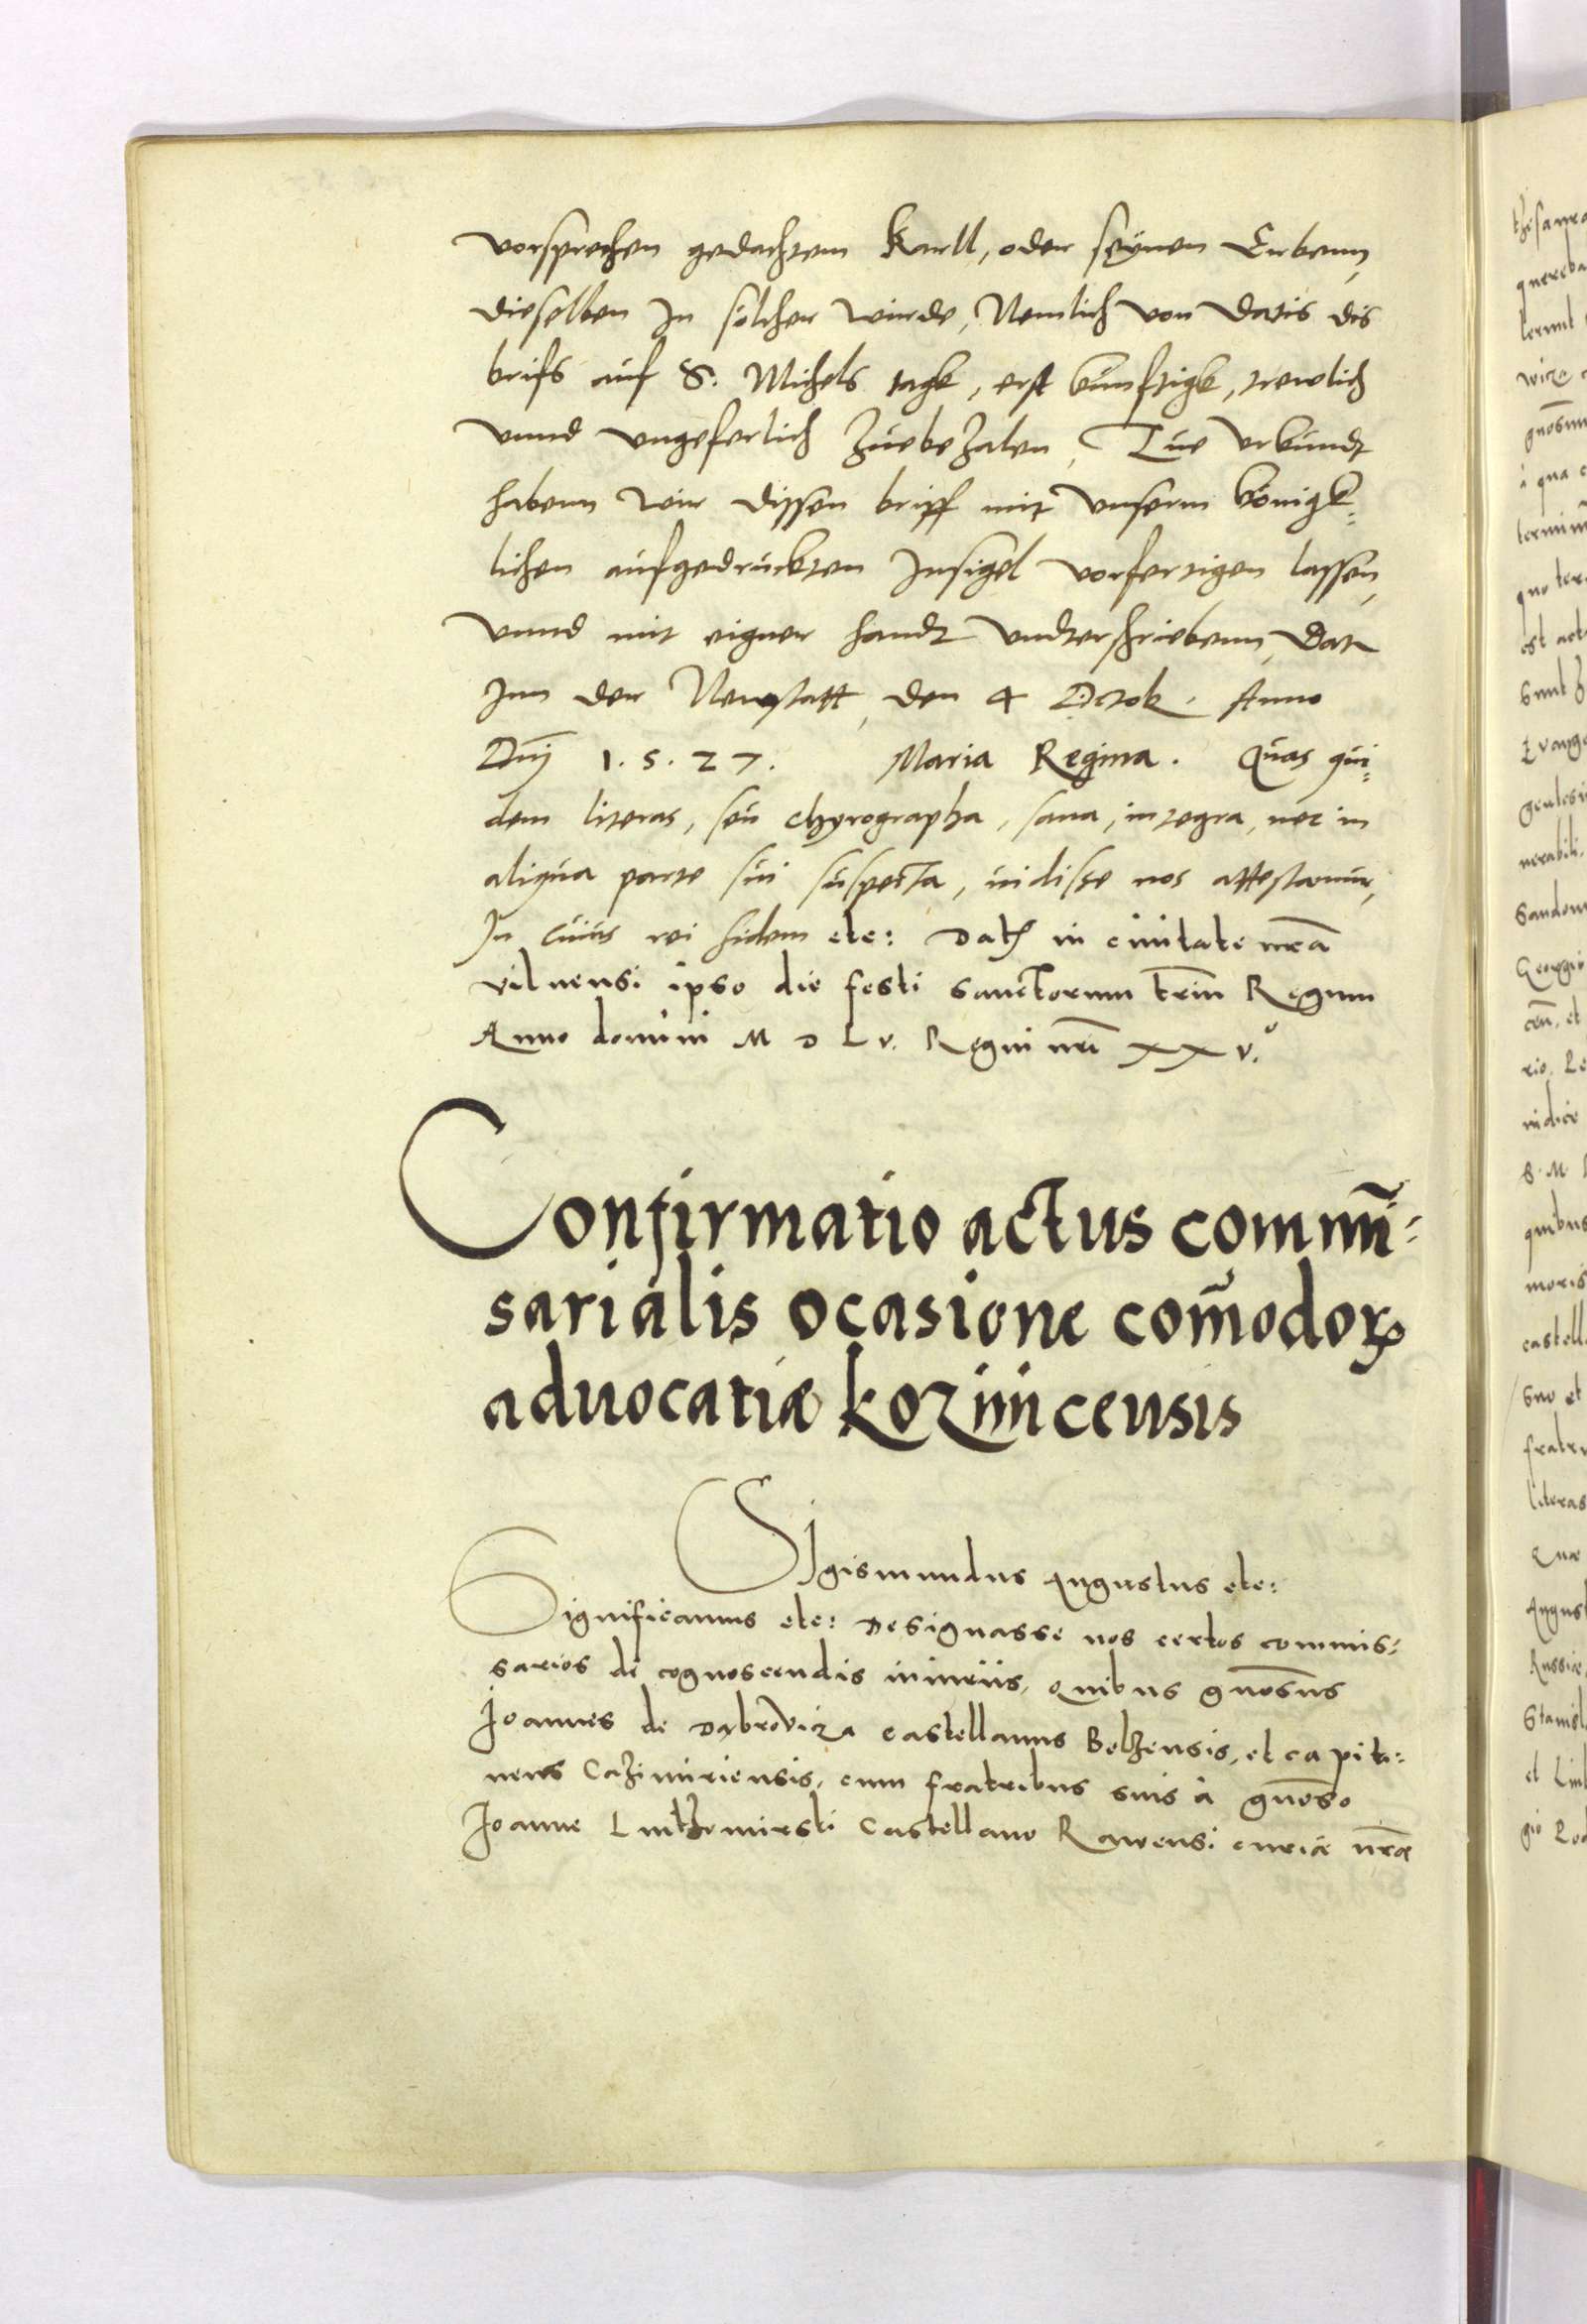 vorsprechen gedachtem Karll, oder seynen Erbenn,
dieselben In solcher wirde, Nemlich von datis dis
brifs auf S. Michels tagk, erst künftigk, trewlich
vnnd vngeferlich zůebezalen, Tůe vrkundt
habenn wir dissen briff mit vnserm königk=
lichen aufgedruckten Insigel vorfertigen lassen,
vnnd mit eigner handt vndterschriebenn, Dat
Inn der Newstatt, den 4 Octob. Anno
Dnj 1.5.27. Maria Regina. Quas qui=
dem literas, seu chyrographa, sana, integra, nec in
aliqua parte sui suspecta, uidisse nos attestamur,
In cuius rei fidem etc: Dat in ciuitate nrã
vilnensi ipso die festi sanctorum triũ Regum
Anno domini M D L v. Regni nrĩ xxv.º
Confirmatio actus commĩ=
sarialis ocasione com̃odorꝝ
aduocatiæ kozinicensis
SIgismundus Augustus etc:
Significamus etc: Designasse nos certos commis=
sarios de cognoscendis iniuriis, quibus gn̄osus
Joannes de Dąbroviza castellanus Belzensis, et capita=
neus Cazimiriensis, cum fratribus suis à gn̄oso
Joanne Lutthomirski Castellano Rawensi curiæ nr̄æ